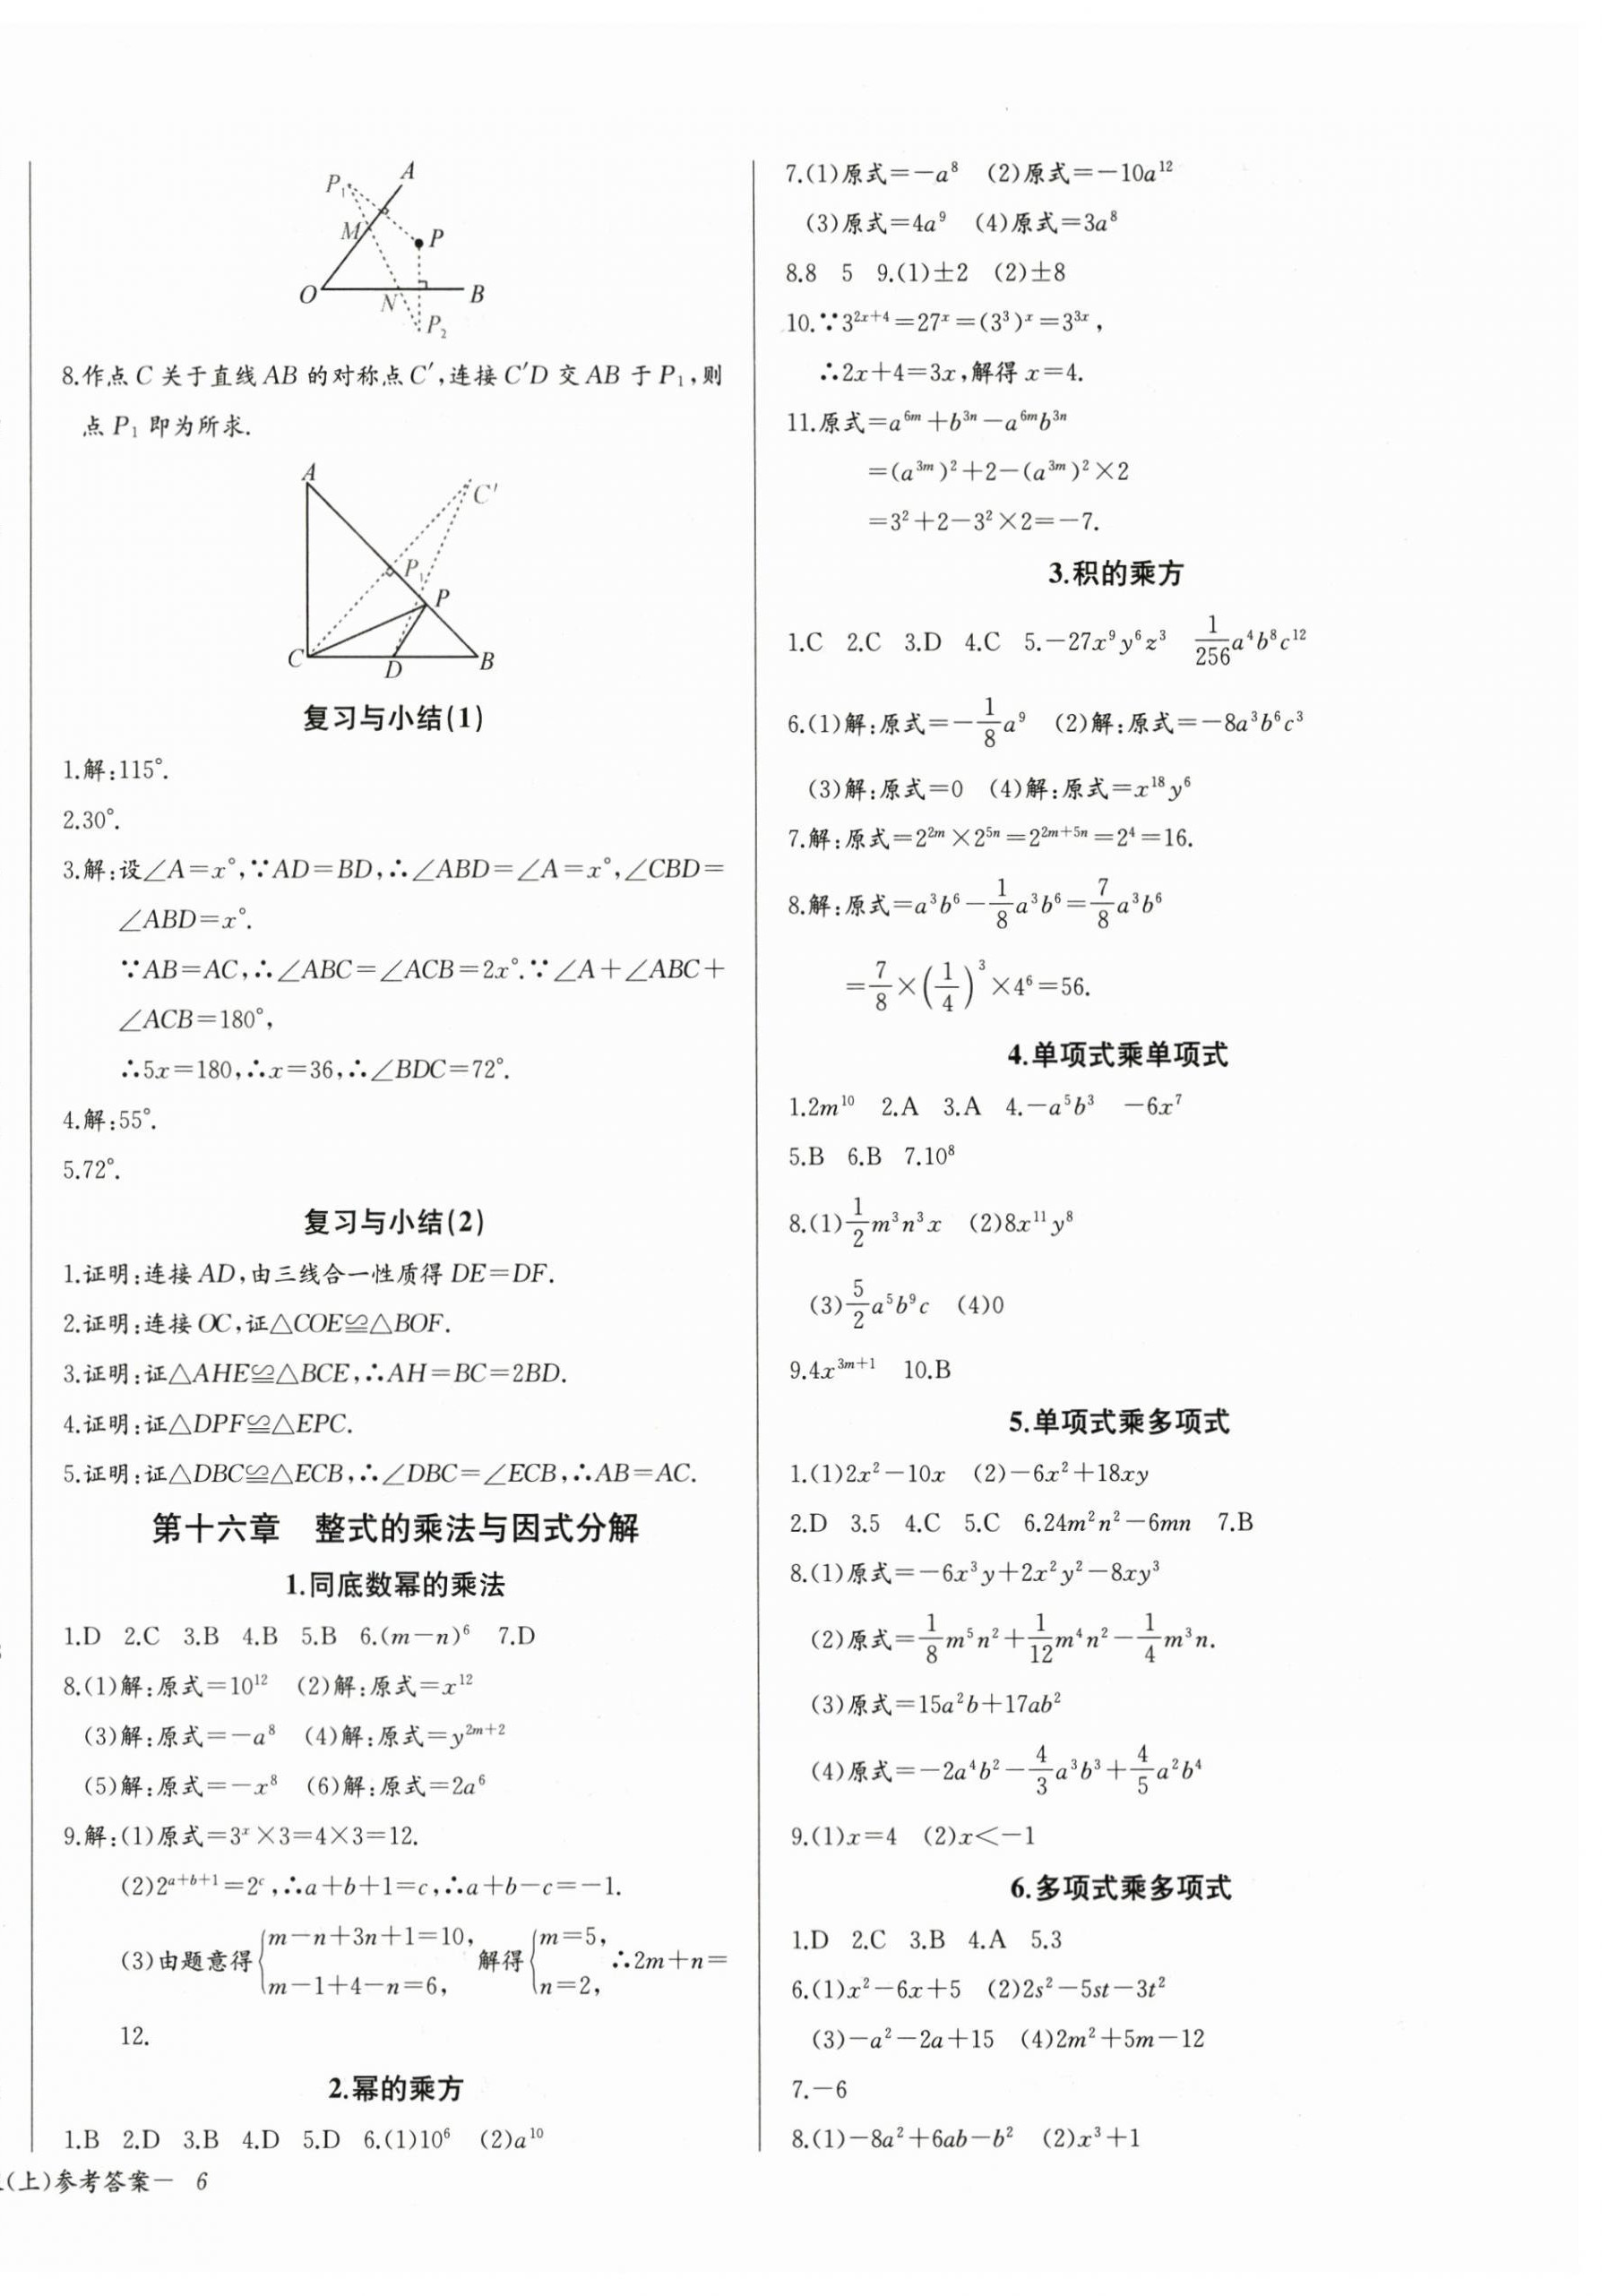 A
P₁
M
P
O
N
B
P₂
8.作点 C 关于直线 AB 的对称点 C′,连接 C′D 交 AB 于 P₁,则
点 P₁ 即为所求.
A
C′
P₁
P
C
D
B
复习与小结(1)
1.解:115°.
2.30°.
3.解:设∠A=x°,∵AD=BD,∴∠ABD=∠A=x°,∠CBD=
∠ABD=x°.
∵AB=AC,∴∠ABC=∠ACB=2x°.∵∠A+∠ABC+
∠ACB=180°,
∴5x=180,∴x=36,∴∠BDC=72°.
4.解:55°.
5.72°.
复习与小结(2)
1.证明:连接 AD,由三线合一性质得 DE=DF.
2.证明:连接 OC,证△COE≌△BOF.
3.证明:证△AHE≌△BCE,∴AH=BC=2BD.
4.证明:证△DPF≌△EPC.
5.证明:证△DBC≌△ECB,∴∠DBC=∠ECB,∴AB=AC.
第十六章 整式的乘法与因式分解
1.同底数幂的乘法
1.D 2.C 3.B 4.B 5.B 6.(m－n)⁶ 7.D
8.(1)解:原式=10¹² (2)解:原式=x¹²
(3)解:原式=－a⁸ (4)解:原式=y^{2m+2}
(5)解:原式=－x⁸ (6)解:原式=2a⁶
9.解:(1)原式=3ˣ×3=4×3=12.
(2)2^{a+b+1}=2^c,∴a+b+1=c,∴a+b－c=－1.
(3)由题意得{m－n+3n+1=10, m－1+4－n=6, 解得{m=5, n=2, ∴2m+n=
12.
2.幂的乘方
1.B 2.D 3.B 4.D 5.D 6.(1)10⁶ (2)a¹⁰
(上)参考答案－ 6
7.(1)原式=－a⁸ (2)原式=－10a¹²
(3)原式=4a⁹ (4)原式=3a⁸
8.8 5 9.(1)±2 (2)±8
10.∵3^{2x+4}=27^x=(3³)^x=3^{3x},
∴2x+4=3x,解得 x=4.
11.原式=a^{6m}+b^{3n}－a^{6m}b^{3n}
=(a^{3m})²+2－(a^{3m})²×2
=3²+2－3²×2=－7.
3.积的乘方
1.C 2.C 3.D 4.C 5.－27x⁹y⁶z³ 1/256 a⁴b⁸c¹²
6.(1)解:原式=－1/8 a⁹ (2)解:原式=－8a³b⁶c³
(3)解:原式=0 (4)解:原式=x¹⁸y⁶
7.解:原式=2^{2m}×2^{5n}=2^{2m+5n}=2⁴=16.
8.解:原式=a³b⁶－1/8 a³b⁶=7/8 a³b⁶
=7/8×(1/4)³×4⁶=56.
4.单项式乘单项式
1.2m¹⁰ 2.A 3.A 4.－a⁵b³ －6x⁷
5.B 6.B 7.10⁸
8.(1)1/2 m³n³x (2)8x¹¹y⁸
(3)5/2 a⁵b⁹c (4)0
9.4x^{3m+1} 10.B
5.单项式乘多项式
1.(1)2x²－10x (2)－6x²+18xy
2.D 3.5 4.C 5.C 6.24m²n²－6mn 7.B
8.(1)原式=－6x³y+2x²y²－8xy³
(2)原式=1/8 m⁵n²+1/12 m⁴n²－1/4 m³n.
(3)原式=15a²b+17ab²
(4)原式=－2a⁴b²－4/3 a³b³+4/5 a²b⁴
9.(1)x=4 (2)x<－1
6.多项式乘多项式
1.D 2.C 3.B 4.A 5.3
6.(1)x²－6x+5 (2)2s²－5st－3t²
(3)－a²－2a+15 (4)2m²+5m－12
7.－6
8.(1)－8a²+6ab－b² (2)x³+1